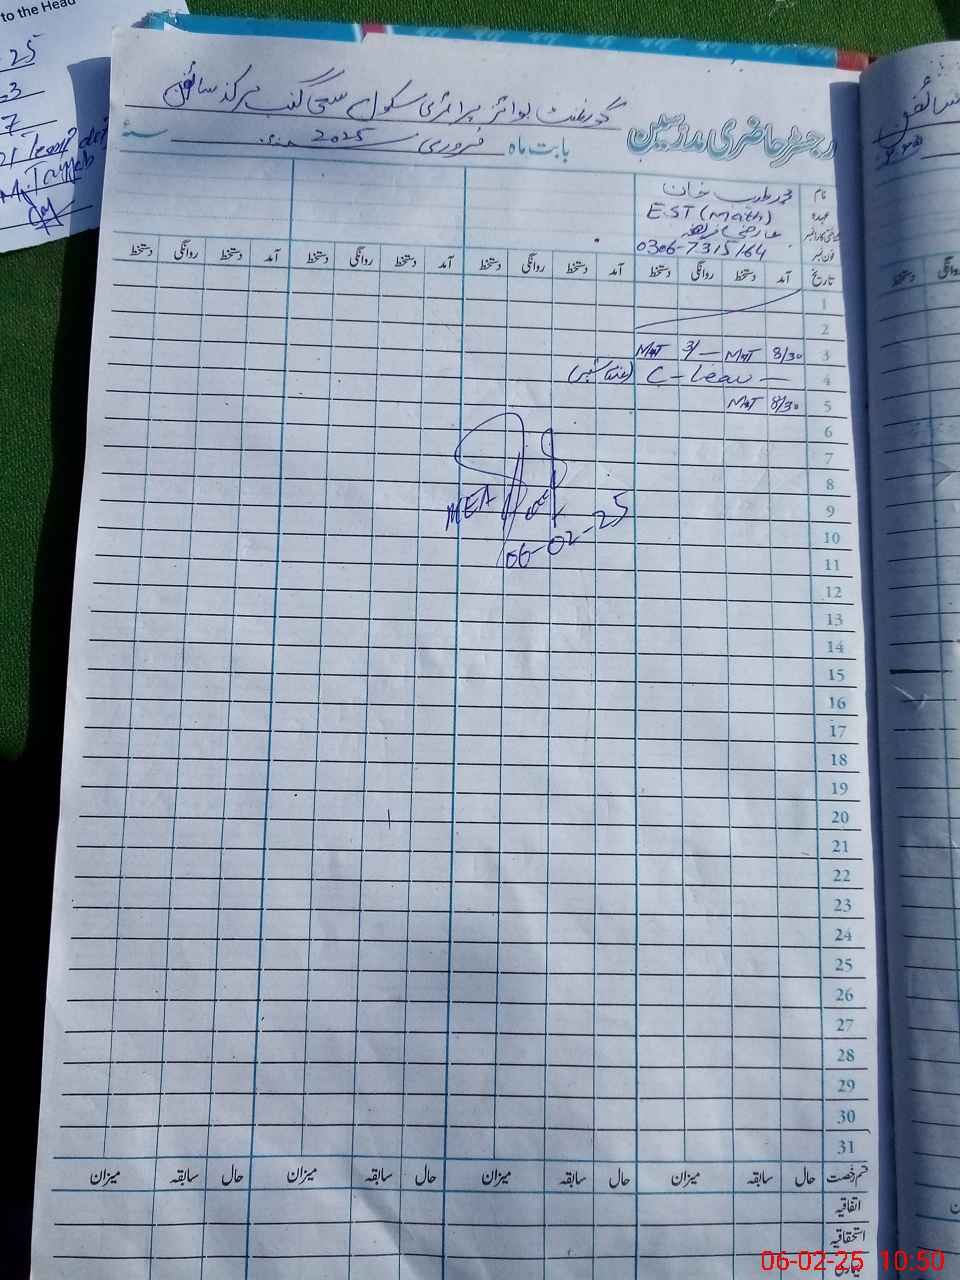 to the Head
25
3
7
رجسٹر حاضری مدرسین
گورنمنٹ بوائز پرائمری سکول سخی گنب مرکز سائفن
بابت ماہ فروری 2025 سنہ
نام محمد طیب خان
عہدہ EST (Math)
فون نمبر 0306-7315164
تاریخ آمد دستخط روانگی دستخط آمد دستخط روانگی دستخط آمد دستخط روانگی دستخط آمد دستخط روانگی دستخط
1
2
3 8/30 MT — 3/ MT
4 — C-Leav
5 8/30 MT
6
7
8
9
MEA
06-02-25
10
11
12
13
14
15
16
17
18
19
20
21
22
23
24
25
26
27
28
29
30
31
قسم رخصت حال سابقہ میزان حال سابقہ میزان حال سابقہ میزان حال سابقہ میزان
اتفاقیہ
استحقاقیہ
بیماری
06-02-25 10:50